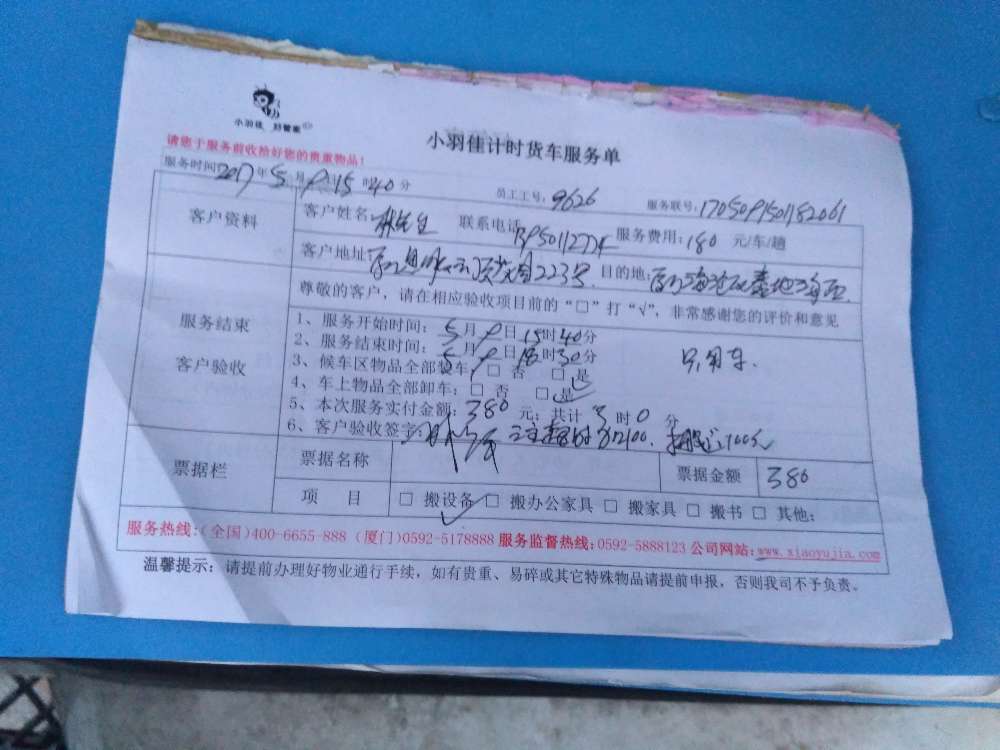 小羽佳 好管家
小羽佳计时货车服务单
请您于服务前收拾好您的贵重物品!
服务时间2017年5月9日15时40分 员工工号:9626 服务联号:1705091501182061
客户资料
客户姓名:林先生 联系电话: 服务费用:180元/车/趟
客户地址: 223号 目的地:
尊敬的客户,请在相应验收项目前的“□”打“√”,非常感谢您的评价和意见
服务结束
客户验收
1、服务开始时间:5月9日15时40分
2、服务结束时间:5月9日18时30分
只用车.
3、候车区物品全部装车,□ 否 □ 是
4、车上物品全部卸车:□ 否 □ 是
5、本次服务实付金额:380元;共计3时0分
6、客户验收签字:
票据栏
票据名称 票据金额 380
项 目 □ 搬设备 □ 搬办公家具 □ 搬家具 □ 搬书 □ 其他:
服务热线:(全国)400-6655-888 (厦门)0592-5178888 服务监督热线:0592-5888123 公司网站:www.xiaoyujia.com
温馨提示:请提前办理好物业通行手续,如有贵重、易碎或其它特殊物品请提前申报,否则我司不予负责。